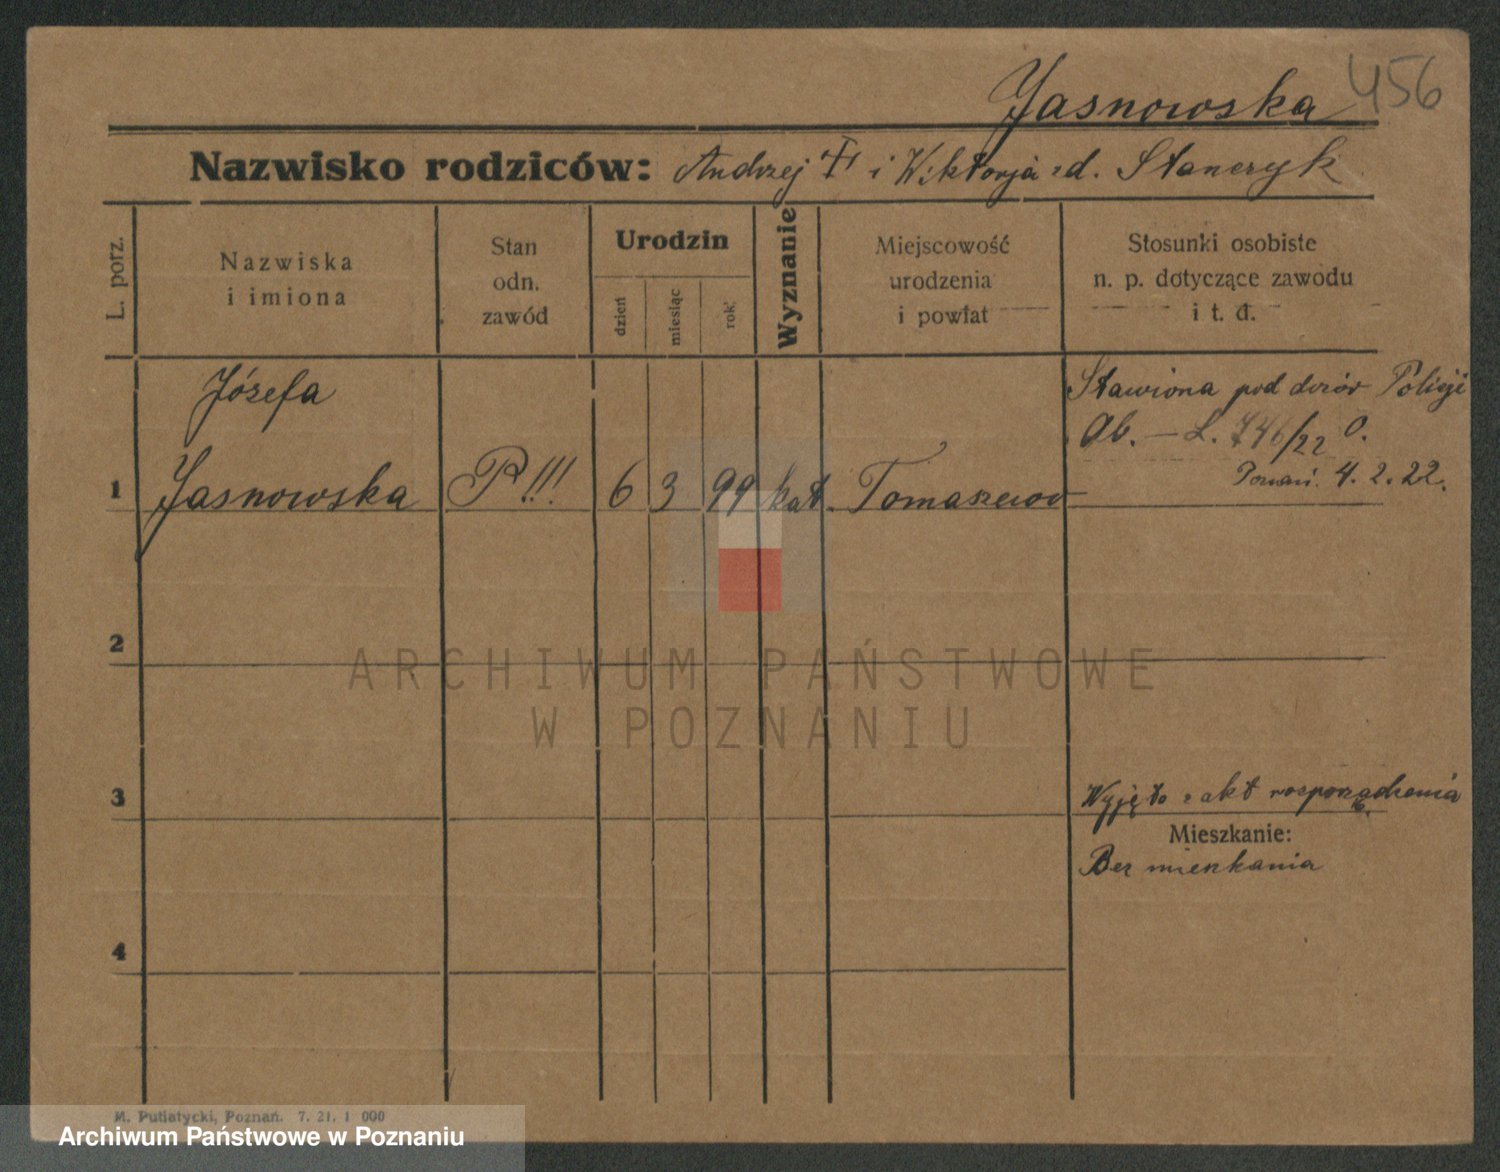 Jasnowska 456
Nazwisko rodziców: Andrzej † i Wiktorja zd. Stanczyk
L. porz.
Nazwiska
i imiona
Stan
odn.
zawód
Urodzin
dzień
miesiąc
rok
Wyznanie
Miejscowość
urodzenia
i powiat
Stosunki osobiste
n. p. dotyczące zawodu
i t. d.
Józefa
Stawiona pod dozór Policji
Ob. — L. 746/22 O.
Poznań. 4. 2. 22.
1 Jasnowska P!!! 6 3 99 kat. Tomaszewo
2
ARCHIWUM PAŃSTWOWE
W POZNANIU
3
Wyjęto z akt rozporządzenia
Mieszkanie:
Bez mieszkania
4
M. Putiatycki, Poznań. 7. 21. 1 000
Archiwum Państwowe w Poznaniu